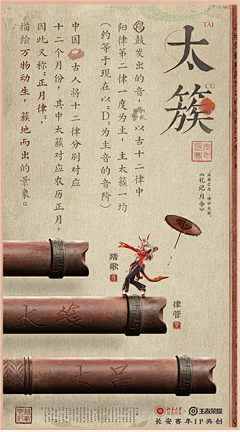 TAI
太簇
CU
《礼记·月令》
鼓发出的音，以古十二律中
阳律第二律一度为主，主太簇一均
（约等于现在以“D”为主音的音阶）
中国古人将十二律分别对应
十二个月份，其中太簇对应农历正月，
因此又称“正月律”，
描绘万物动生，簇地而出的景象。
踏歌
律管
太簇
大吕
王者荣耀
长安赛年IP共创